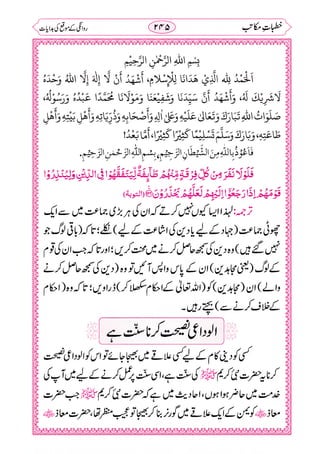 خطباتِ مکاتب ۲۴۵ روانگی کے موقع کی ہدایات
بِسْمِ اللّٰهِ الرَّحْمٰنِ الرَّحِيْمِ
اَلْحَمْدُ لِلّٰهِ الَّذِيْ هَدَانَا لِلْاِسْلَامِ، وَأَشْهَدُ أَنْ لَّا إِلٰهَ إِلَّا اللهُ وَحْدَهُ
لَا شَرِيْكَ لَهٗ، وَأَشْهَدُ أَنَّ سَيِّدَنَا وَشَفِيْعَنَا وَمَوْلَانَا مُحَمَّدًا عَبْدُهُ وَرَسُوْلُهُ،
صَلَوَاتُ اللهِ تَبَارَكَ وَتَعَالٰى عَلَيْهِ وَعَلٰى اٰلِهٖ وَأَصْحَابِهٖ وَذُرِّيَّاتِهٖ وَأَهْلِ بَيْتِهٖ وَأَهْلِ
طَاعَتِهٖ، وَبَارَكَ وَسَلَّمَ تَسْلِيْمًا كَثِيْرًا كَثِيْرًا، أَمَّا بَعْدُ!
فَأَعُوْذُ بِاللهِ مِنَ الشَّيْطَانِ الرَّجِيْمِ، بِسْمِ اللهِ الرَّحْمٰنِ الرَّحِيْمِ.
فَلَوْلَا نَفَرَ مِنْ كُلِّ فِرْقَةٍ مِّنْهُمْ طَآئِفَةٌ لِّيَتَفَقَّهُوْا فِى الدِّيْنِ وَلِيُنْذِرُوْا
قَوْمَهُمْ اِذَا رَجَعُوْٓا اِلَيْهِمْ لَعَلَّهُمْ يَحْذَرُوْنَ (التوبة)
ترجمہ: لہٰذا ایسا کیوں نہیں کرتے کہ ان کی ہر بڑی جماعت میں سے ایک
چھوٹی جماعت (جہاد کے لیے یا دین کی اشاعت کے لیے) نکلے؛ تاکہ (باقی لوگ جو
نہیں گئے ہیں) وہ (دین کی) سمجھ حاصل کرنے میں محنت کریں؛ اور تاکہ جب ان کی قوم
کے لوگ (یعنی مجاہدین) ان کے پاس واپس آئیں تو وہ (دین کی سمجھ حاصل کرنے
والے) ان (مجاہدین) کو (اللہ تعالیٰ کے احکام سکھا کر) ڈراویں؛ تاکہ وہ (احکام
کے خلاف کرنے سے) بچتے رہیں۔
الوداعی نصیحت کرنا سنت ہے
کسی کو دینی کام کے لیے کسی علاقے میں بھیجا جائے تو اس کو الوداعی نصیحت
کرنا یہ حضرت نبیٔ کریم ﷺ کی سنت ہے، اسی سنت پر عمل کرنے کے لیے میں آپ کی
خدمت میں حاضر ہوا ہوں، احادیث میں ہے کہ حضرت نبیٔ کریم ﷺ جب حضرت
معاذ ؓ کو یمن کے ایک علاقے میں گورنر بنا کر بھیج رہے تھے تو عجیب منظر تھا، حضرت معاذ ؓ